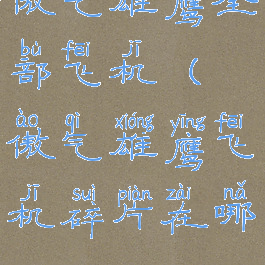 傲气雄鹰全
bù fēi jī
部飞机(
ào qì xióng yīng fēi
傲气雄鹰飞
jī suì piàn zài nǎ
机碎片在哪